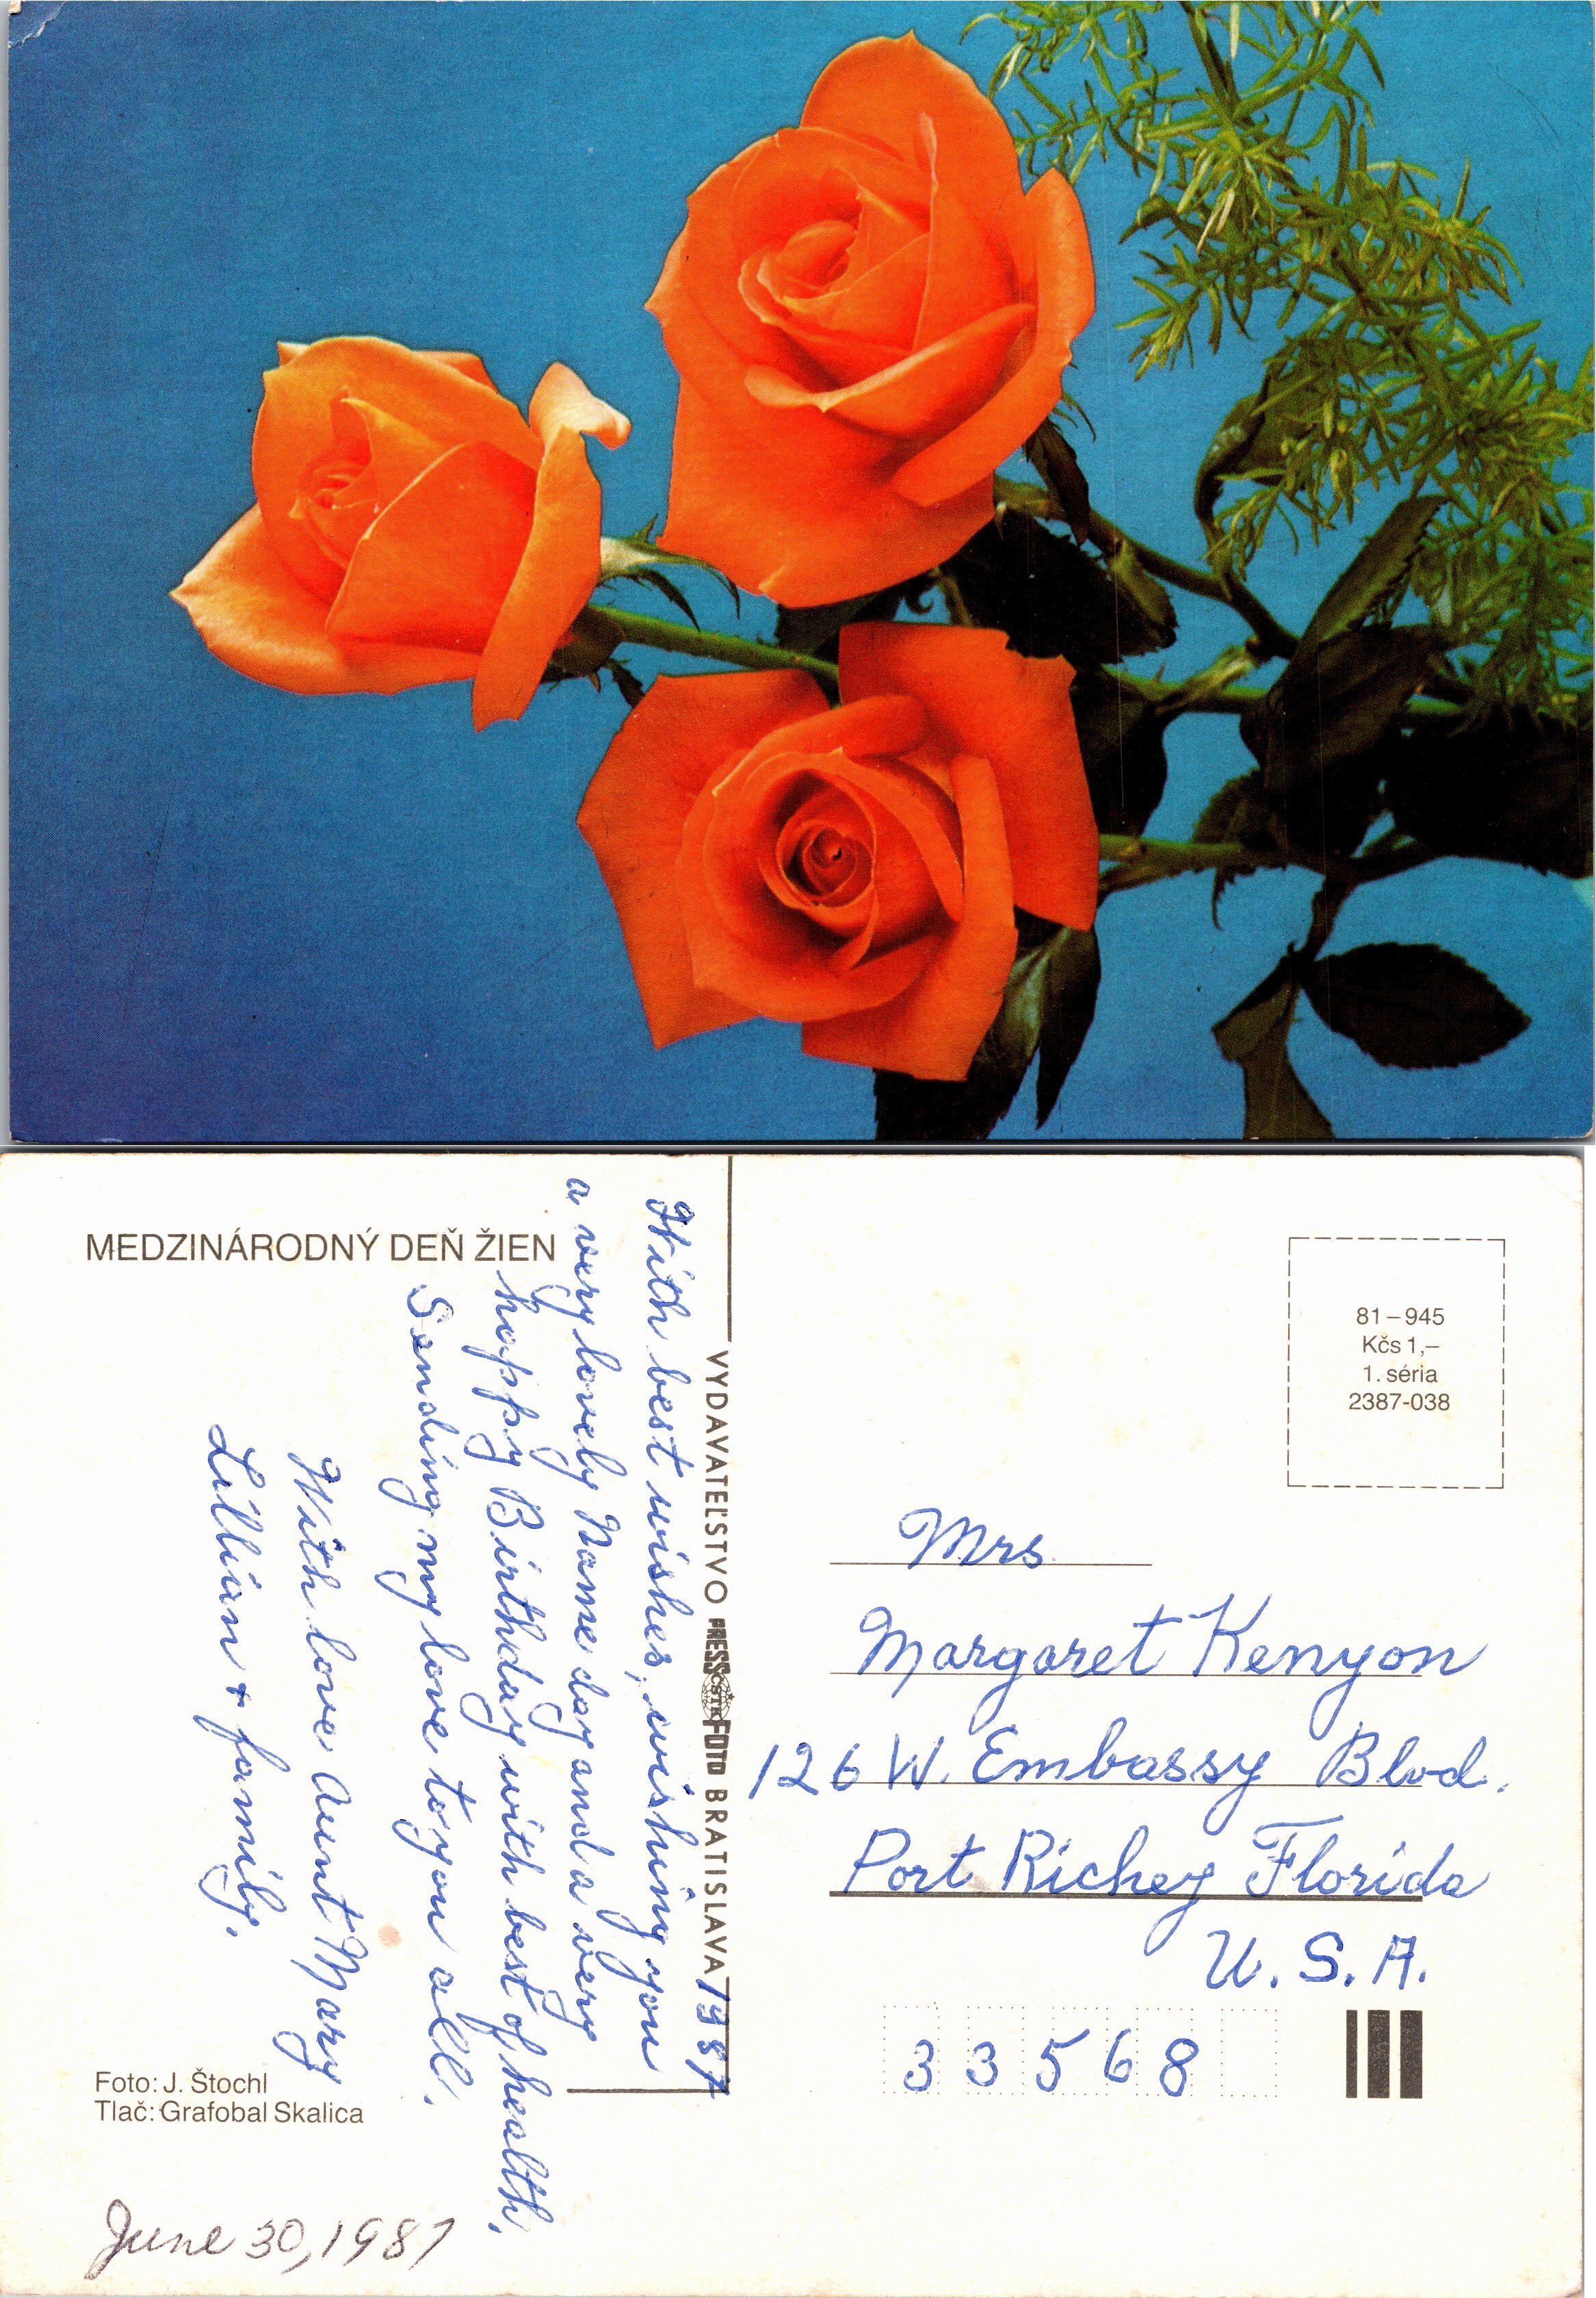 MEDZINÁRODNÝ DEŇ ŽIEN
With best wishes, wishing you
a very lovely Name day and a very
happy Birthday with best of health,
Sending my love to you all.
With love Aunt Mary
Lillian + family.
Foto: J. Štochl
Tlač: Grafobal Skalica
June 30, 1987
VYDAVATEĽSTVO PRESSČSTKFOTO BRATISLAVA 1987
81–945
Kčs 1,–
1. séria
2387-038
Mrs
Margaret Kenyon
126 W. Embassy Blvd.
Port Richey Florida
U.S.A.
33568